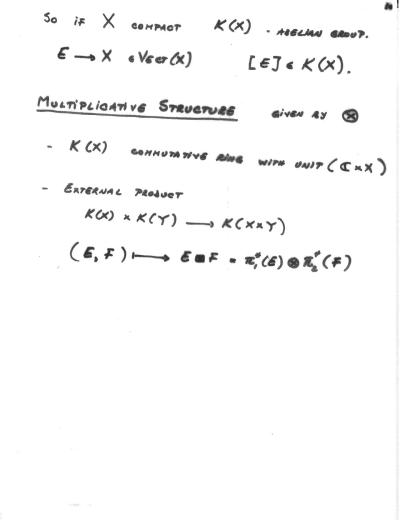 So if X compact K(X) - abelian group.
E → X ∈ Vect(X) [E] ∈ K(X).
Multiplicative Structure given by ⊗
- K(X) commutative ring with unit (ℂ × X)
- External product
K(X) × K(Y) → K(X×Y)
(E, F) ↦ E ⊠ F = π₁*(E) ⊗ π₂*(F)